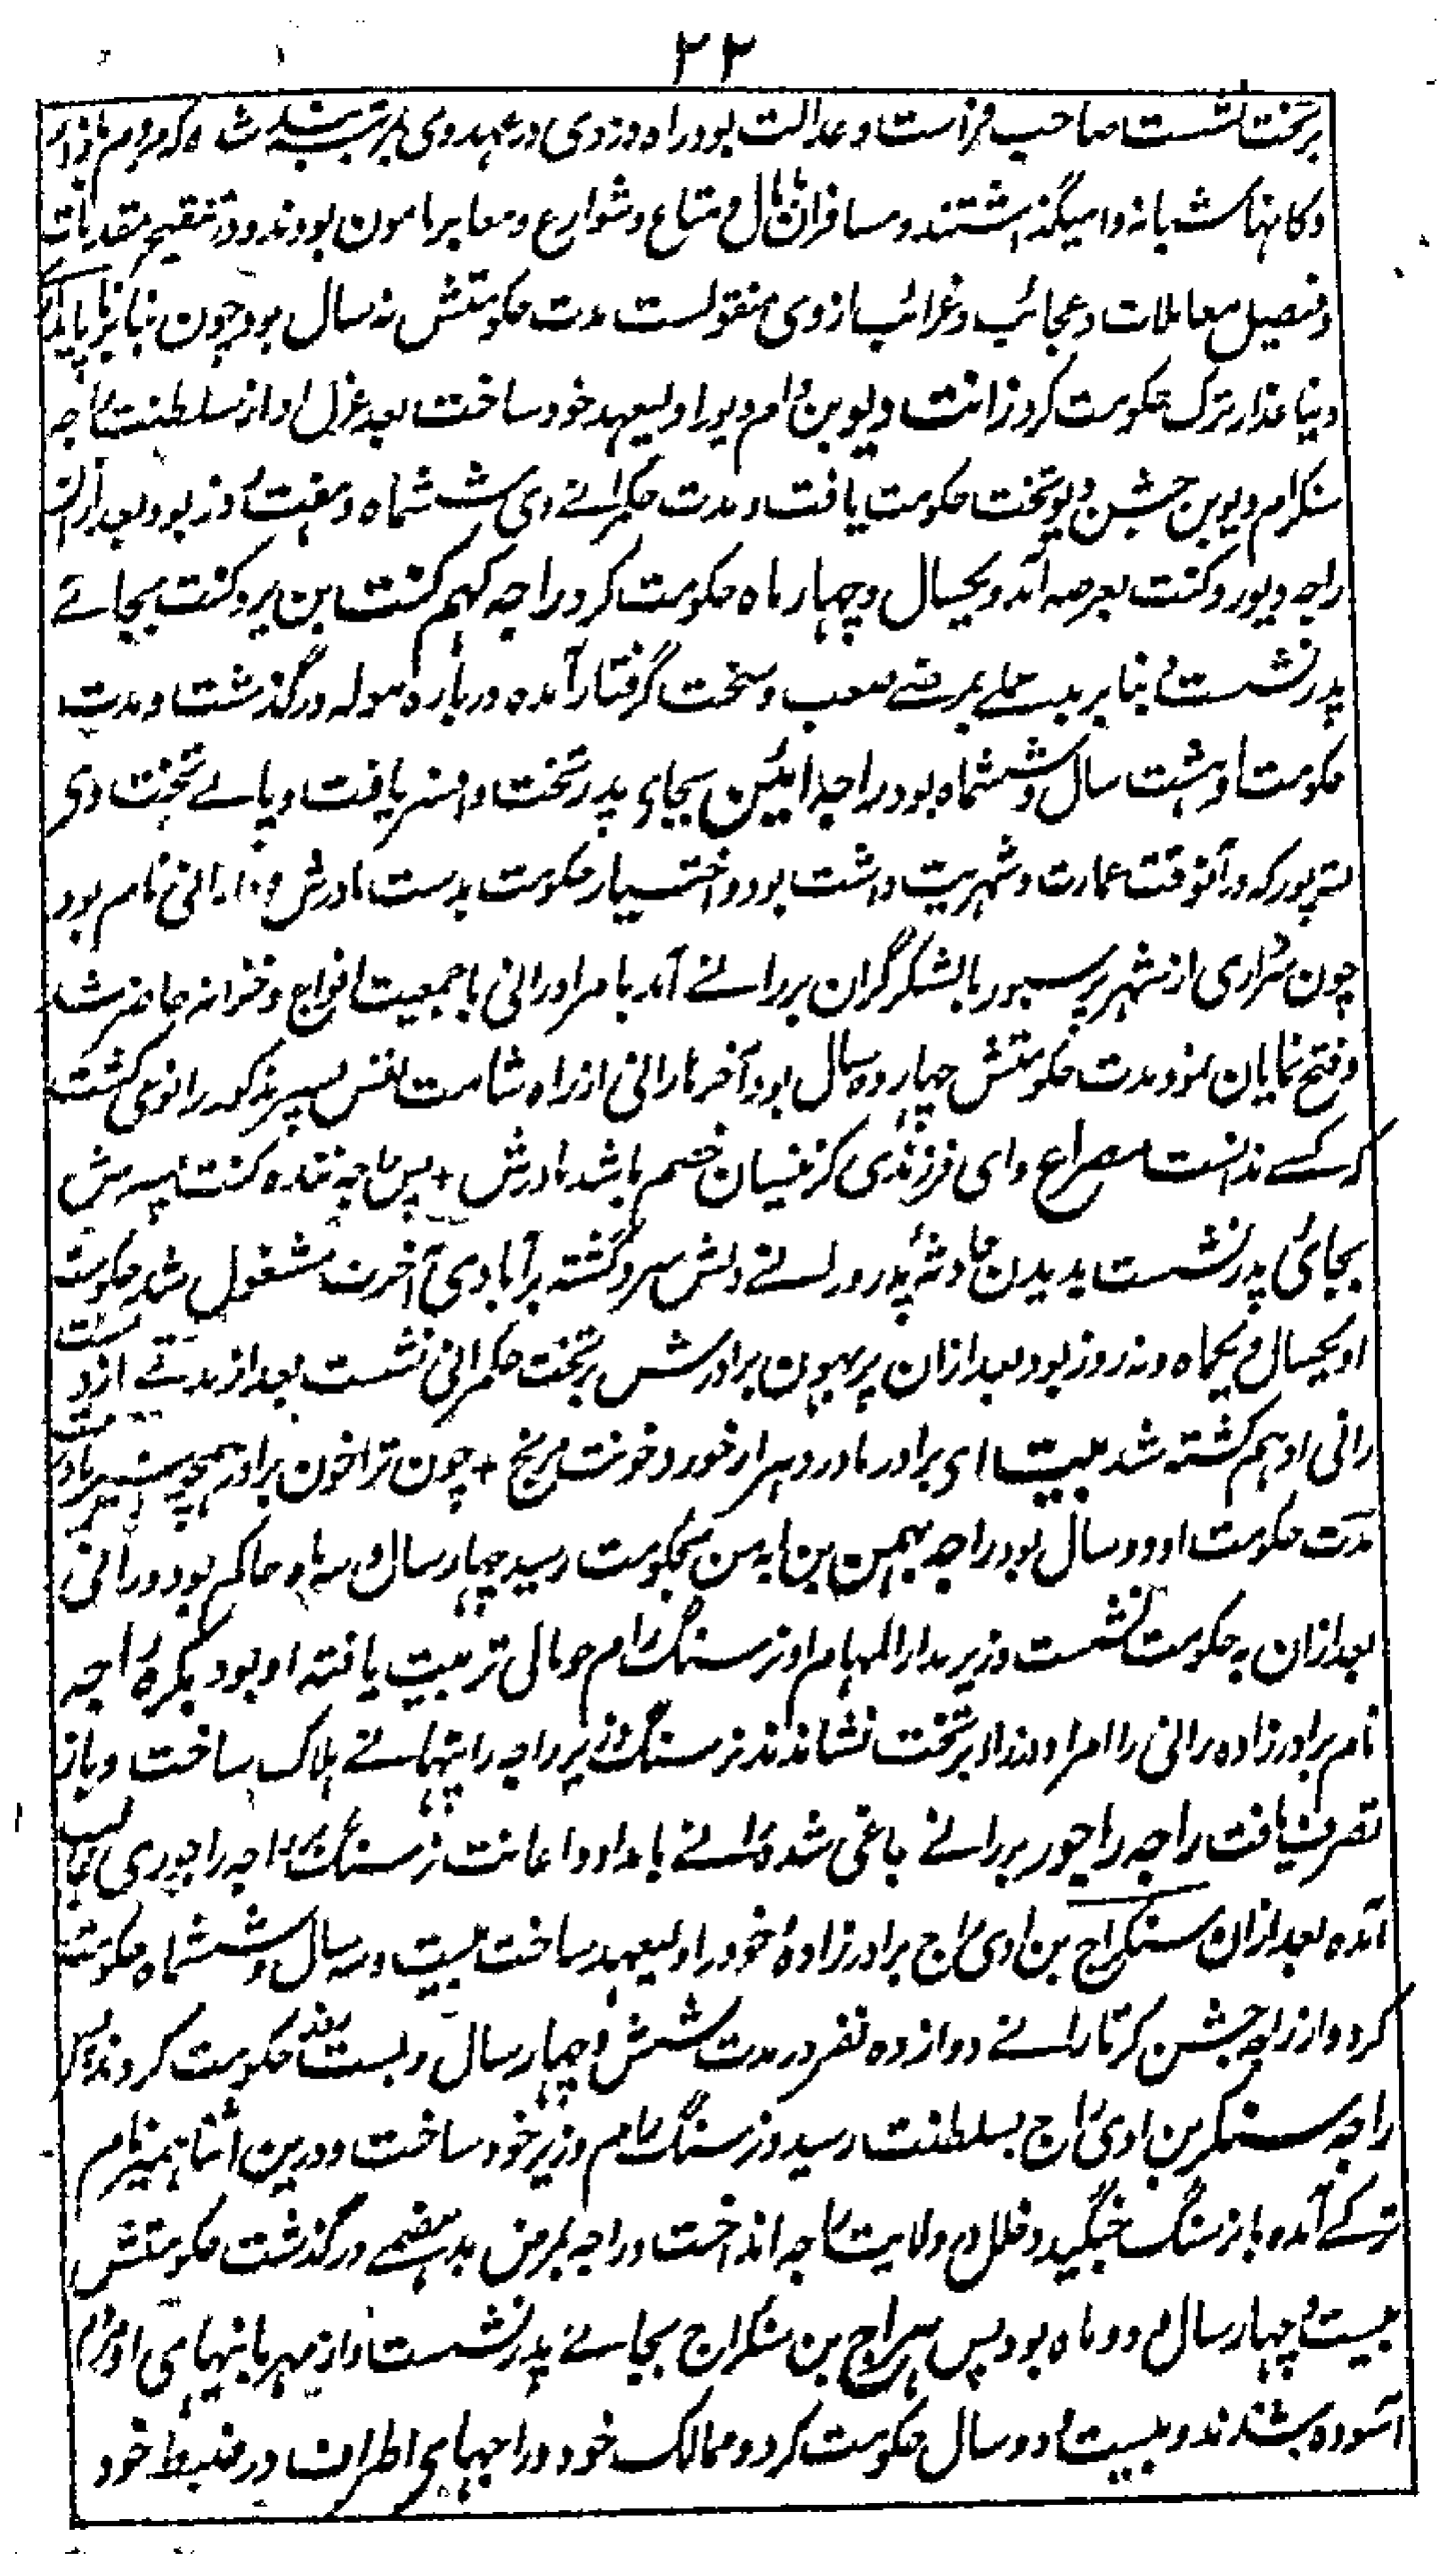 ۲۲
برتخت نشست صاحب فراست و عدالت بود راه دزدی در عهد وی بمرتبه بسته شد که مردم بازار
دکانها شبانه وا میگذاشتند و مسافران با مال و متاع و شوارع و معابر مامون بودند و در تنقیح مقدمات
و فیصل معاملات و عجائب و غرائب از وی منقولست مدت حکومتش نه سال بود چون بنا بر ناپایداری
دنیا غدار ترک حکومت کرد زانت دیو بن رام دیو را ولیعهد خود ساخت بعد عزل او از سلطنت راجه
سنکرام دیو بن جشن دیو تخت حکومت یافت و مدت حکمرانے وی ششماه و هفت روز بود بعد ازان
راجه دیو روکنت بعرصه آمد و یکسال و چهار ماه حکومت کرد راجه کهم کنت بن پروکنت بجائے
پدر نشست و بنا بر بد عملے بمرضے صعب و سخت گرفتار آمده در باره موله درگذشت و مدت
حکومت او هشت سال و ششماه بود راجه ابیکن بجای پدر تخت و افسر یافت و پاے تخت وی
پته پور که در آنوقت عمارت و شهریت داشت بود و اختیار حکومت بدست مادرش رانی نام بود
چون سرداری از شهر پرسپور با لشکر گران بر رانے آمد بامر او رانی با جمعیت افواج و خزانه حاضر شد
و فتح نمایان نمود مدت حکومتش چهارده سال بود آخر ما رانی از راه شامت نفس پسر مذکور را نوعی کشت
که کسے ندانست مصراع وای فرزندی کز ینسان خصم باشد مادرش + پس راجه ننده کنت پسرش
بجائی پدر نشست بدیدن حادثه پدر و رانے دلش سرد گشته بر آبادی آخرت مشغول شد حکومت
او یکسال و یکماه و نه روز بود بعد ازان پربهون برادرش برتخت حکمرانی نشست بعد از مدتے از دست
رانی او هم کشته شد بیت ای برادر مادر دهر ار خورد خونت مرنج + چون ترا خون برادر همچو شیر مادر
مدت حکومت او دو سال بود راجه بهمین بن بهمن بحکومت رسید چهار سال و سه ماه حاکم بود و رانی
بعد ازان به حکومت نشست وزیر مدار المهام او نرسنگ رام حمالی تربیت یافته او بود بکره راجه
نام برادر زاده رانی را امرا و وزرا برتخت نشاندند نرسنگ وزیر راجه را پنهانے هلاک ساخت و باز
تصرف یافت راجه راجور بر رانے باغی شد رانے با مداد و اعانت نرسنگ راجه راجوری غالب
آمده بعد ازان سنکراج بن ادی راج برادر زاده خود را ولیعهد ساخت بیست و سه سال و ششماه حکومت
کرد و از راجه جشن کرتا رانے دوازده نفر در مدت شش و چهار سال و بست روز حکومت کردند پس
راجه سنکر بن ادی راج بسلطنت رسید و نرسنگ رام وزیر خود ساخت و در ین اثنا همیر نام
ترکے آمده با نرسنگ جنگید و خلل در ولایت راجه انداخت و راجه بمرض بد هضمے درگذشت حکومتش
بیست و چهار سال و دو ماه بود پس هراج بن سنکراج بجائے پدر نشست و از مهربانیهای او مردم
آسوده شدند و بیست و دو سال حکومت کرد و ممالک خود و راجهای اطراف در ضبط خود